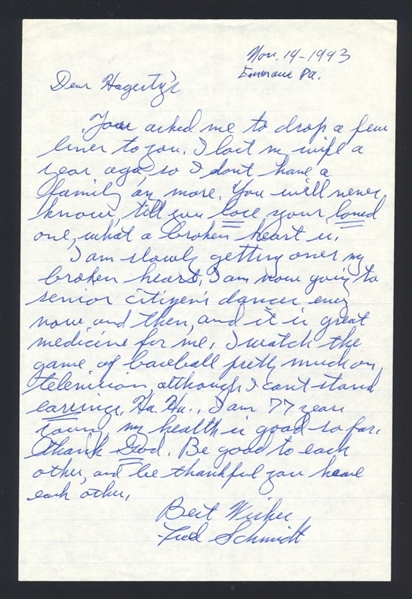 Nov. 14-1993
Emmaus Pa.
Dear Hagerty's
Your asked me to drop a few
lines to you. I lost m wife a
year ago, so I don't have a
family an more. You will never
know, till you lose your loved
one, what a broken heart is.
I am slowly getting over my
broken heart, I am now going to
senior citizen's dances every
now and then, and it is great
medicine for me. I watch the
game of baseball pretty much on
television, although I can't stand
earrings, Ha Ha., I am 77 years
young my health is good so far.
Thank God. Be good to each
other, and be thankful you have
each other.
Best Wishes
Fred Schmidt